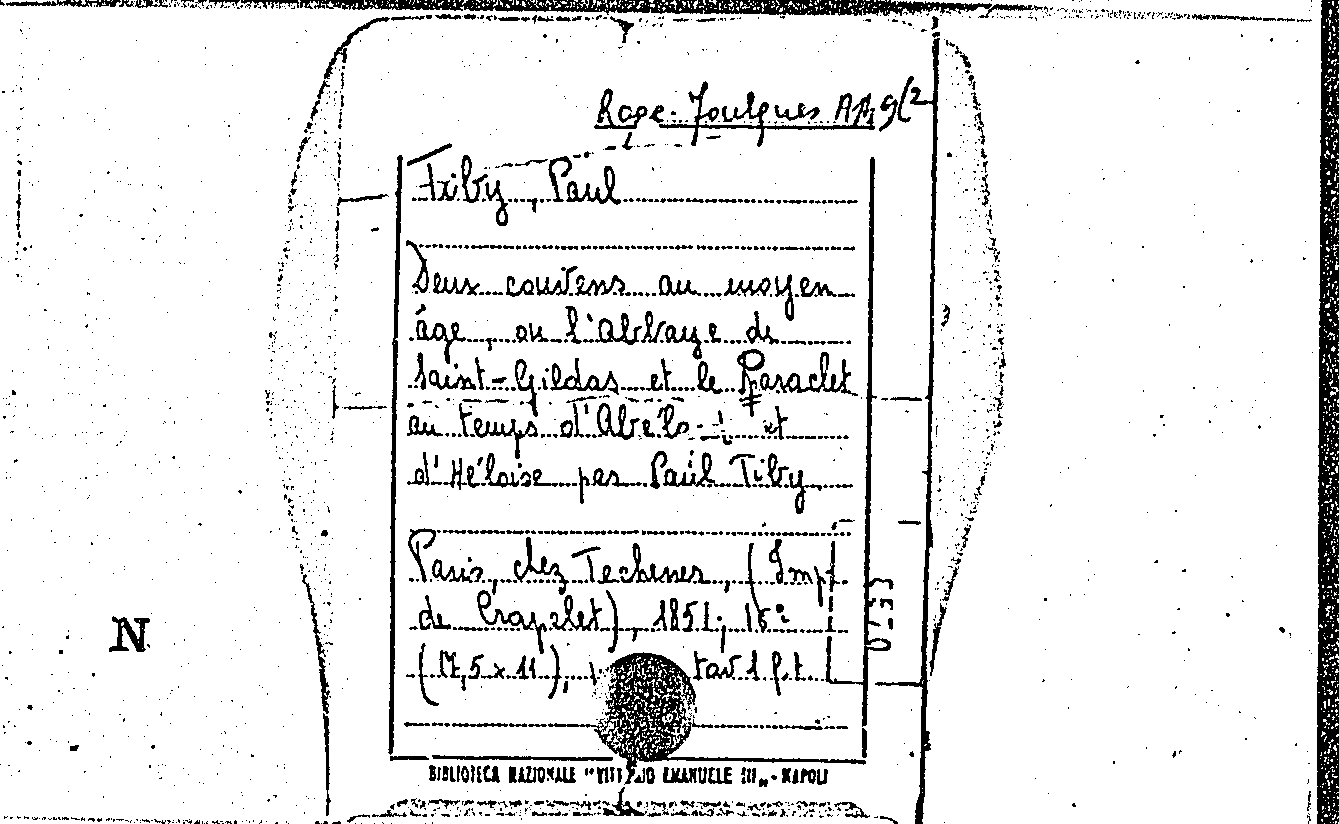 Race. Foulques AA 9(2
Tiby, Paul
Deux couvens au moyen
âge, ou l'Abbaye de
Saint-Gildas et le Paraclet
au temps d' et
d'Héloise par Paul Tiby.
Paris, chez Techener, (Imp.
de Crapelet), 1851; 16°
(17,5 x 11), tav 1 f.t.
N
BIBLIOTECA NAZIONALE "VITTORIO EMANUELE III„ - NAPOLI